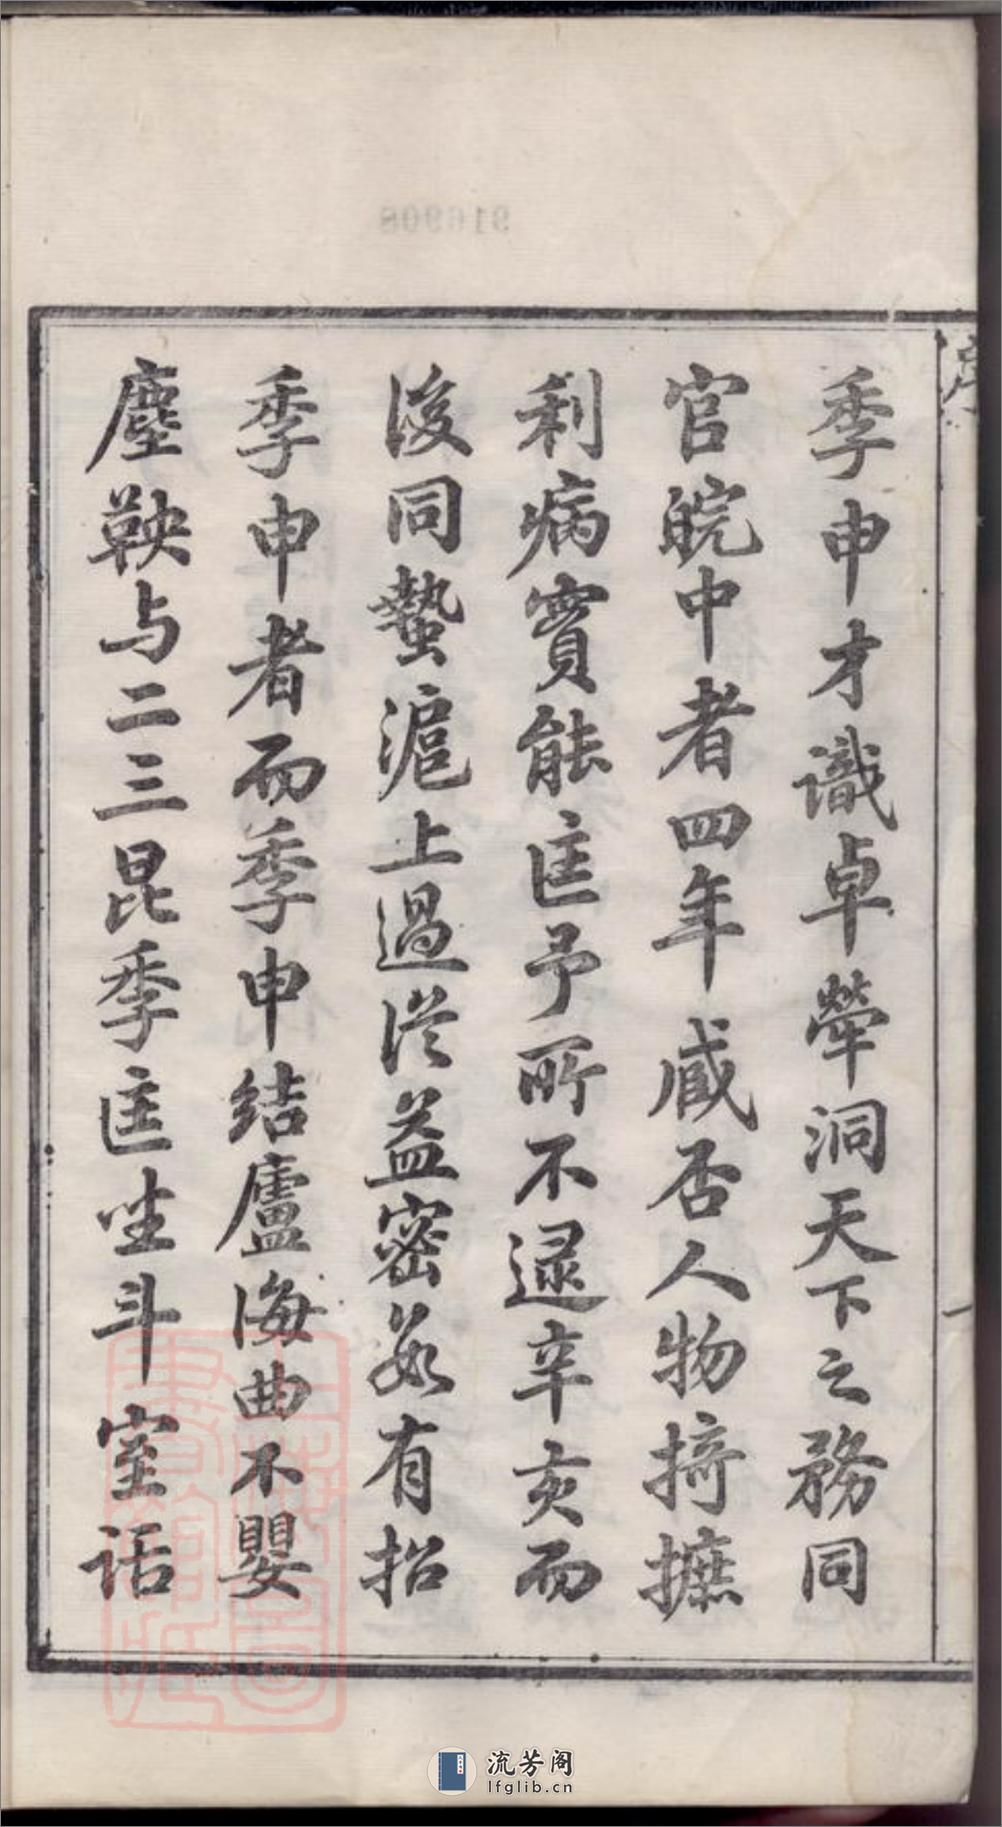 序
一
季申才識卓犖洞天下之務同
官皖中者四年臧否人物掎摭
利病實能匡予所不逮辛亥而
後同蟄滬上過從益密每有招
季申者而季申結廬海曲不嬰
塵鞅与二三昆季匡坐斗室話
916908
上海圖書館藏
流芳阁
lfglib.cn